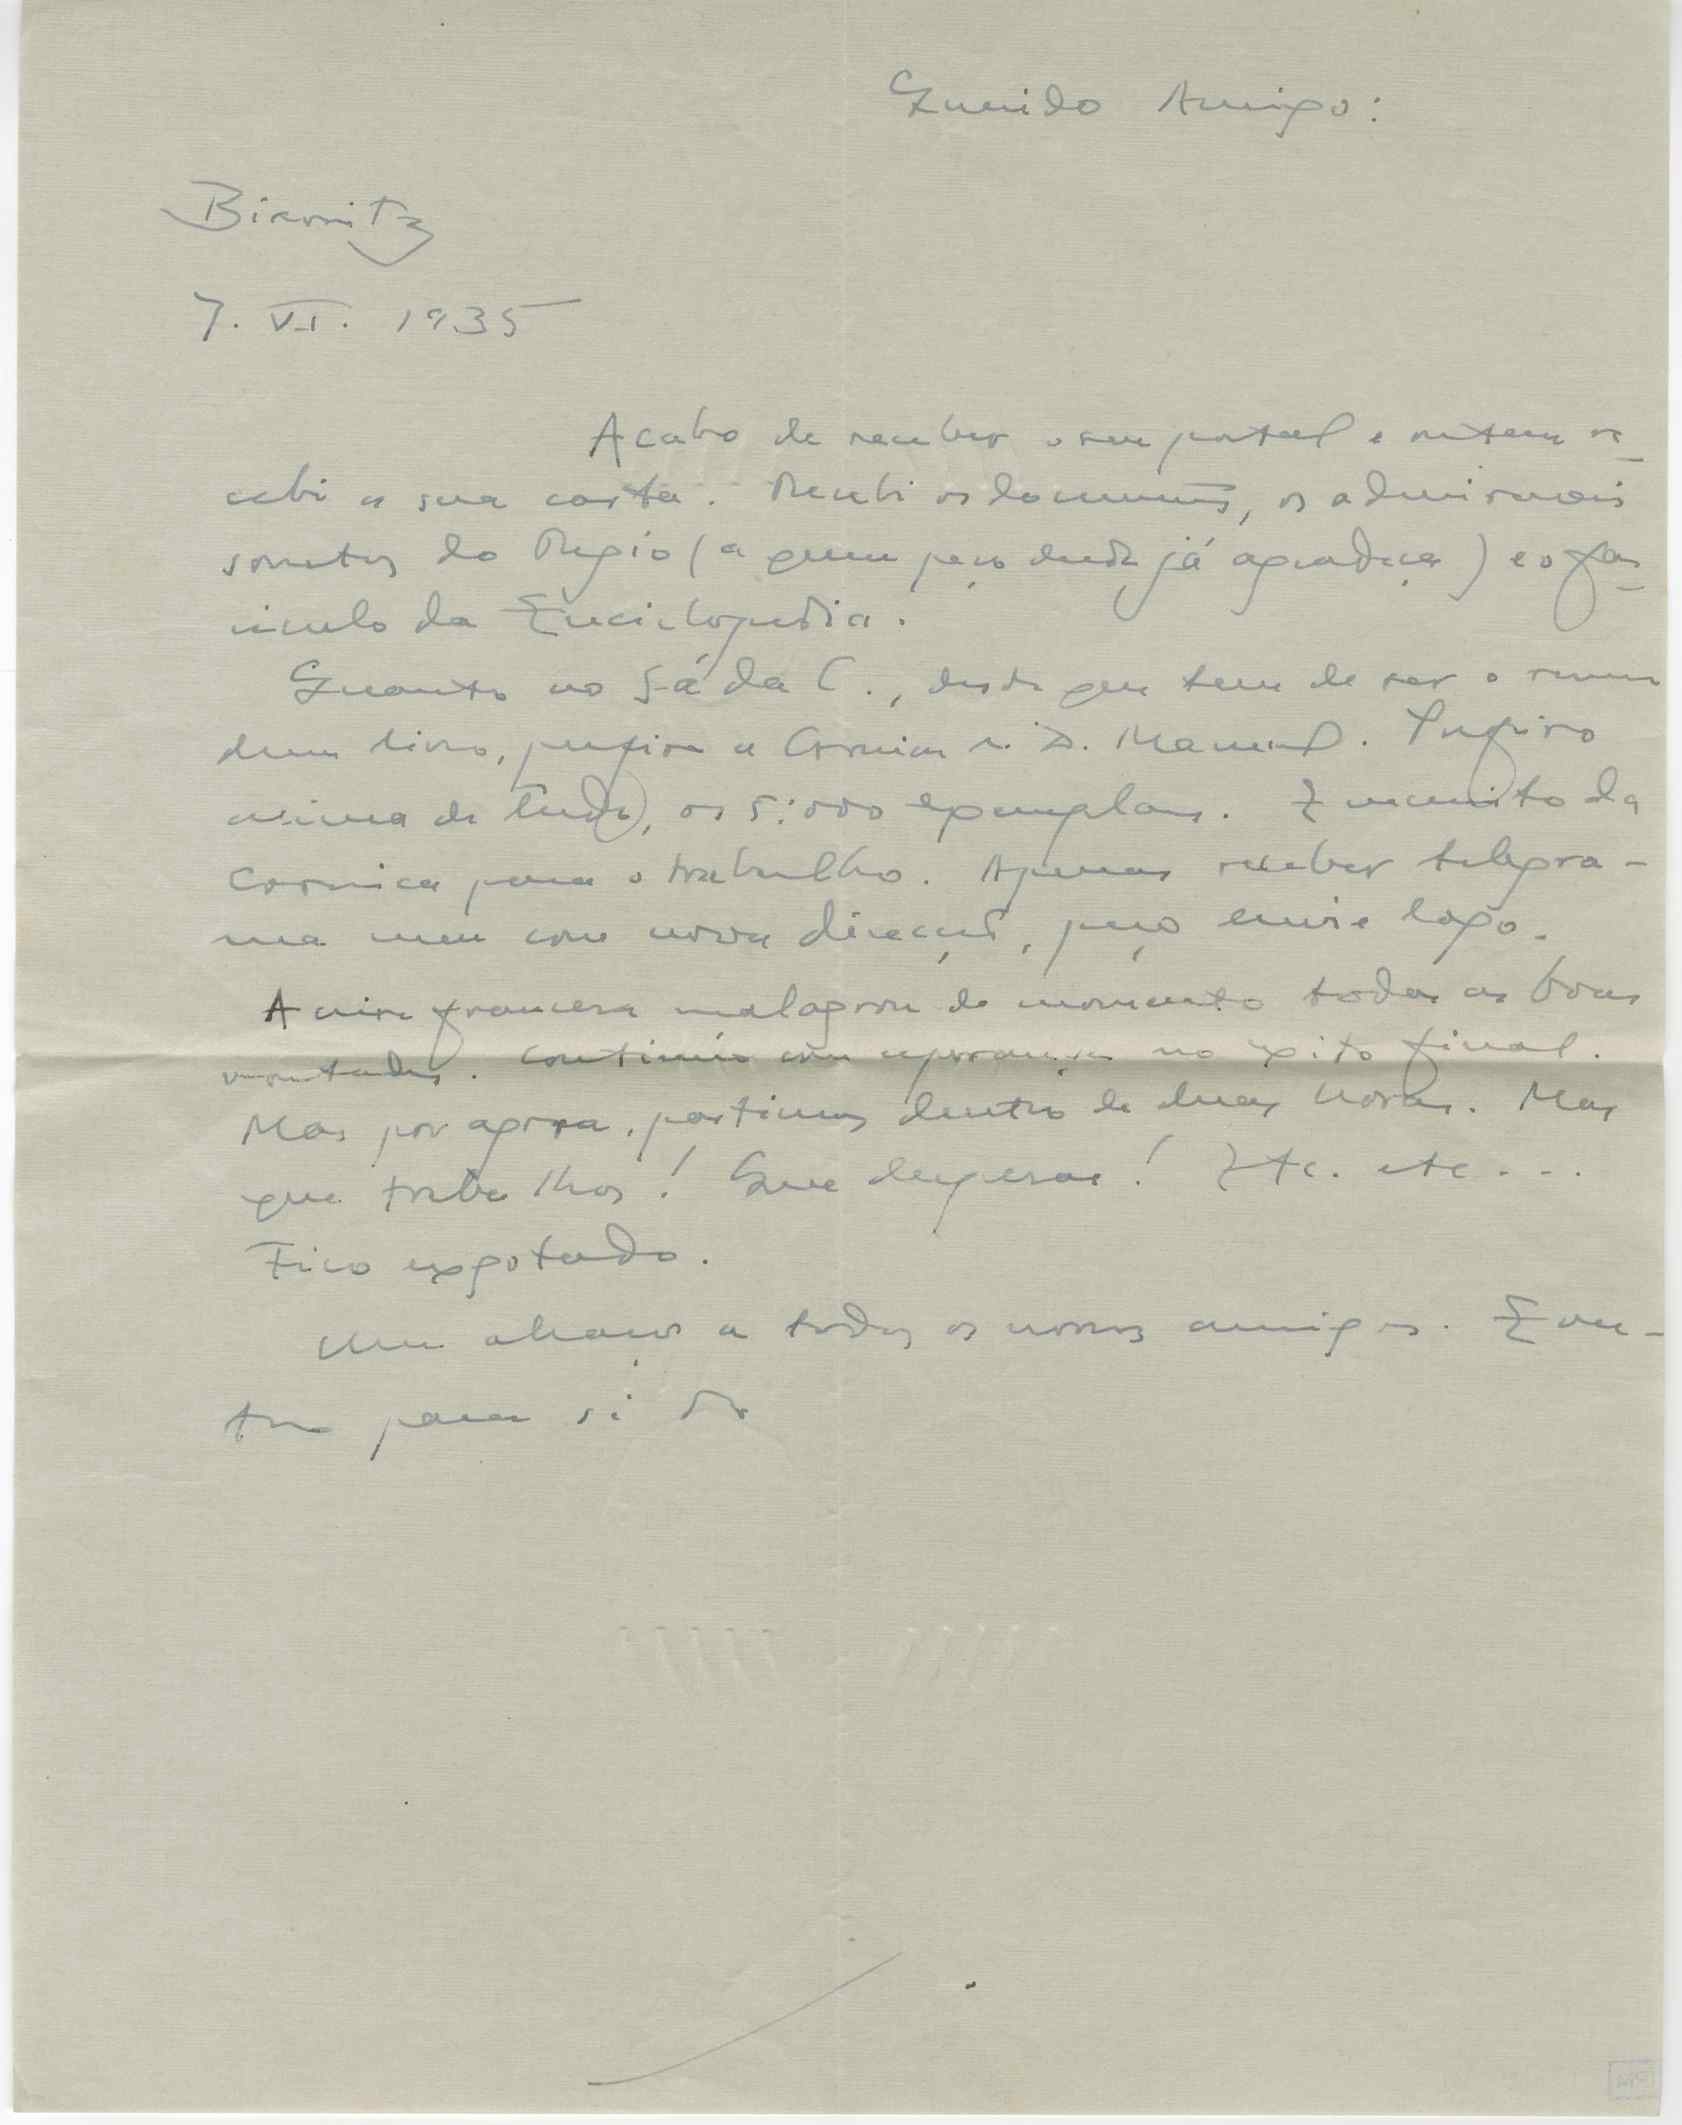 Querido Amigo:
Biarritz
7. VI. 1935
Acabo de receber o seu postal e ontem re-
cebi a sua carta. Recebi os documentos, os admiraveis
sonetos do Regio (a quem peço desde já agradeça) e o fas-
ciculo da Enciclopedia.
Quanto ao Sá da C., desde que tem de ser o resumo
dum livro, prefiro a Cronica de D. Manuel. Prefiro
acima de tudo, os 5:000 exemplares. E necessito da
Cronica para o trabalho. Apenas receber telegra-
ma meu com nova direcção, peço envie logo.
A crise francesa malogrou de momento todas as boas
vontades. Continúo com esperança no exito final.
Mas por agora, partimos dentro de duas horas. Mas
que trabalhos! Que despesas! Etc. etc...
Fico esgotado.
Um abraço a todos os nossos amigos. E ou-
tro para si do